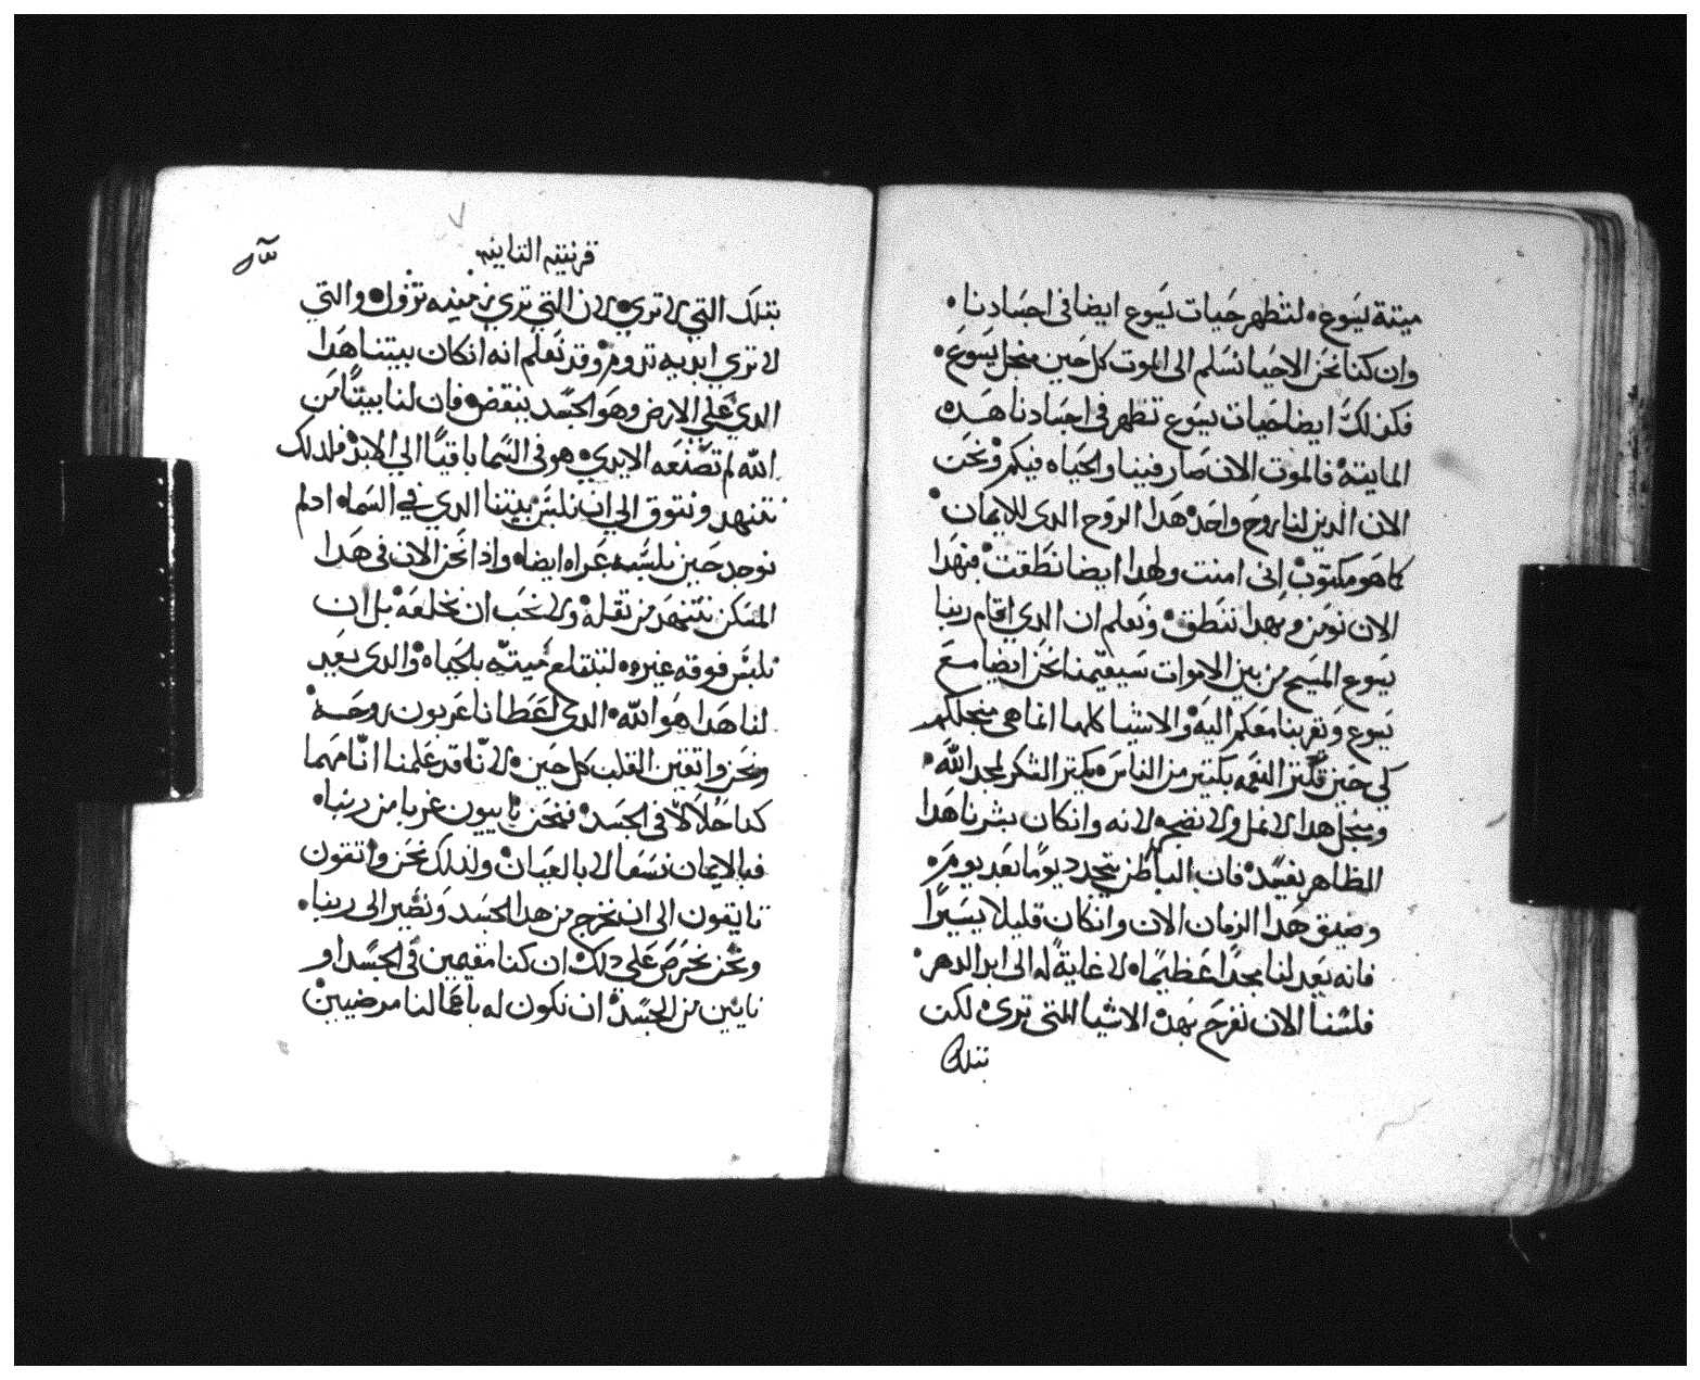 ميتة يسوع • لتظهر حيات يسوع ايضا فى اجسادنا •
وان كنا نحن الاحيا نسلم الى الموت كل حين منجل يسوع •
فكذلك ايضا حيات يسوع تظهر فى اجسادنا هذه
المايته فالموت الان صار فينا والحياه فيكم ونحن
الان الدين لنا روح واحد هدا الروح الدى للايمان •
كما هو مكتوب انى امنت ولهدا ايضا نطقت فبهدا
الان نومن وبهدا ننطق ونعلم ان الدي اقام ربنا
يسوع المسيح من بين الاموات سيقيمنا نحن ايضا مع
يسوع وتقربنا معكم اليه والاشيا كلها انما هى منجلكم
لكي حين تكتر النعمه بكتير من الناس يكتر الشكر لمجد الله •
ومنجل هدا لا نمل ولا نضجر لانه وانكان بشرنا هدا
الظاهر يفسد فان الباطن يتجدد يومًا بعد يوم
وضيق هدا الزمان الان وانكان قليلا يسيرًا
فانه يعد لنا مجدًا عظيمًا لا غايةً له الى ابد الدهر •
فلسنا الان نفرح بهده الاشيا التى ترى لكن
بتلك
قرنتيه التانيه
بتلك التي لا تري لان التي تري زمنيه تزول والتي
لا تري ابديه تدوم وقد نعلم انه انكان بيتنا هدا
الدي علي الارض وهو الجسد ينتقض فان لنا بيتًا من
الله لم تصنعه الايدي هو فى السما باقيًا الي الابد فلدلك
نتنهد ونتوق الي ان نلبس بيتنا الدي في السما ادلم
نوجد حين نلبسه عراه ايضا واذا نحن الان فى هدا
المسكن نتنهد من تقله ولا نحب ان نخلعه بل ان
نلبس فوقه غيره لتبتلع ميتته بالحياه والدى يعيد
لنا هدا هو الله • الدى اعطانا عربون روحه
ونحن واتقين القلب كل حين لانّا قد علمنا انّا مهما
كنا حلالاً فى الجسد فنحن نايبون غربا من ربنا •
فبالايمان نسعا لا بالعيان ولدلك نحن واتقون
تايقون الى ان نخرج من هدا الجسد ونصير الى ربنا •
ونحن نحرص على دلك ان كنا مقيمين فى الجسد او
نايين من الجسد ان نكون له باعمالنا مرضيين